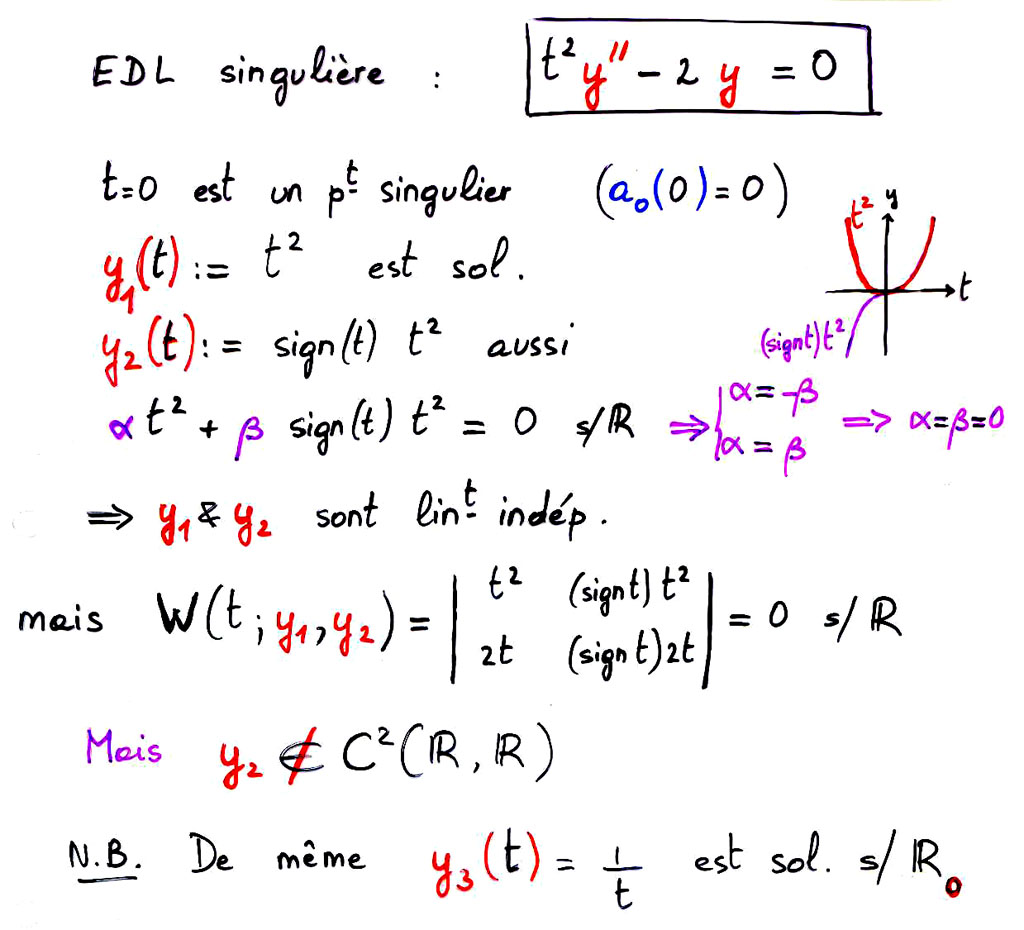 EDL singulière : t² y'' - 2 y = 0
t=0 est un pᵗ singulier (a₀(0)=0)
y
t²
t
y₁(t) := t² est sol.
y₂(t) := sign(t) t² aussi
(signt)t²
α t² + β sign(t) t² = 0 s/ℝ ⟹ { α = -β α = β ⟹ α=β=0
⟹ y₁ & y₂ sont linᵗ indép.
mais W(t ; y₁, y₂) = | t² (signt) t² | = 0 s/ℝ
| 2t (signt)2t |
Mais y₂ ∉ C²(ℝ, ℝ)
N.B. De même y₃(t) = 1/t est sol. s/ℝ₀